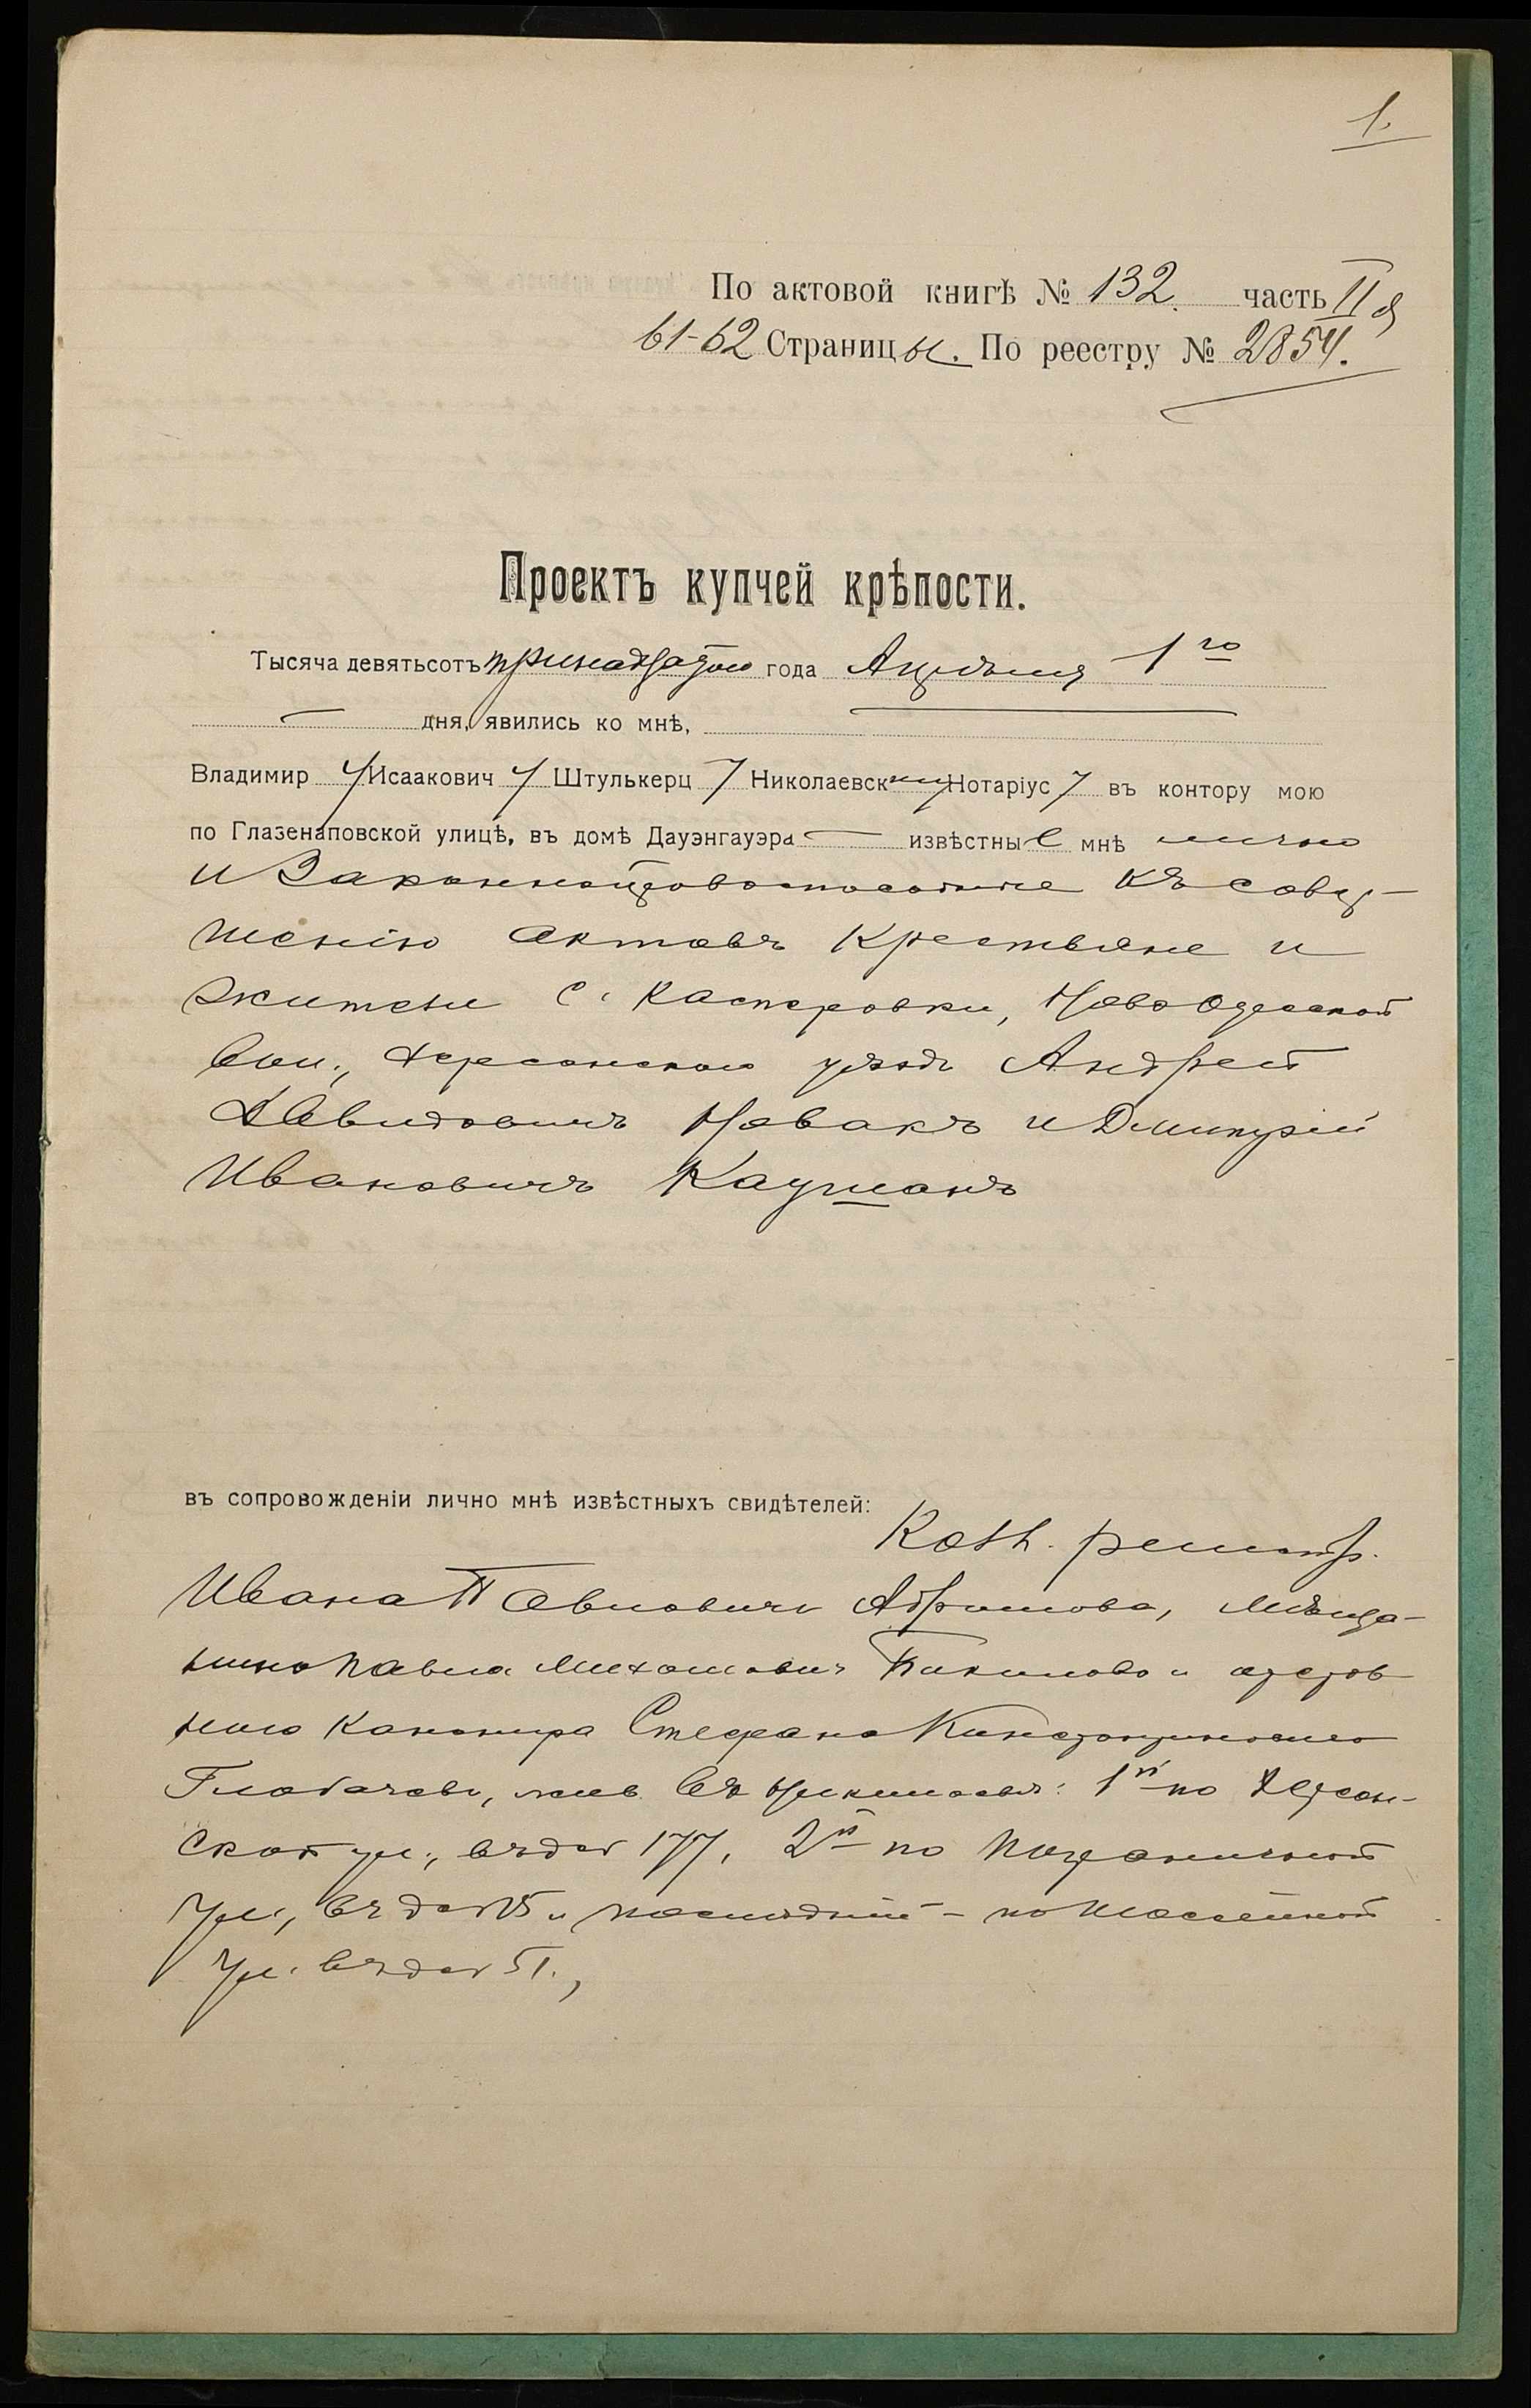 1.
По актовой книгѣ № 132. часть II я
61-62 Страницы. По реестру № 2854.
Проектъ купчей крѣпости.
Тысяча девятьсотъ тринадцатого года Апрѣля 1го
дня, явились ко мнѣ,
Владимир Исаакович Штулькерц Николаевскій Нотаріус въ контору мою
по Глазенаповской улицѣ, въ домѣ Дауэнгауэра извѣстные мнѣ лично
и Законноправоспособные къ совер-
шенію актовъ крестьяне и
жители с. Касперовки, Ново Одесской
вол., Херсонскаго уѣзда Андрей
Давидовичъ Новакъ и Дмитрій
Ивановичъ Кауманъ
въ сопровожденіи лично мнѣ извѣстныхъ свидѣтелей:
Колл. регистр.
Ивана Павловича Абрамова, мѣща-
нина Павла Михайловича и
Канонира Стефана Константиновича
Глобачева, жив. въ Николаевѣ: 1й по Херсон-
ской ул., въ д№ 177, 2й по Пограничной
ул., въ д№ 15 и послѣдній - по
ул. въ д№ 51.,